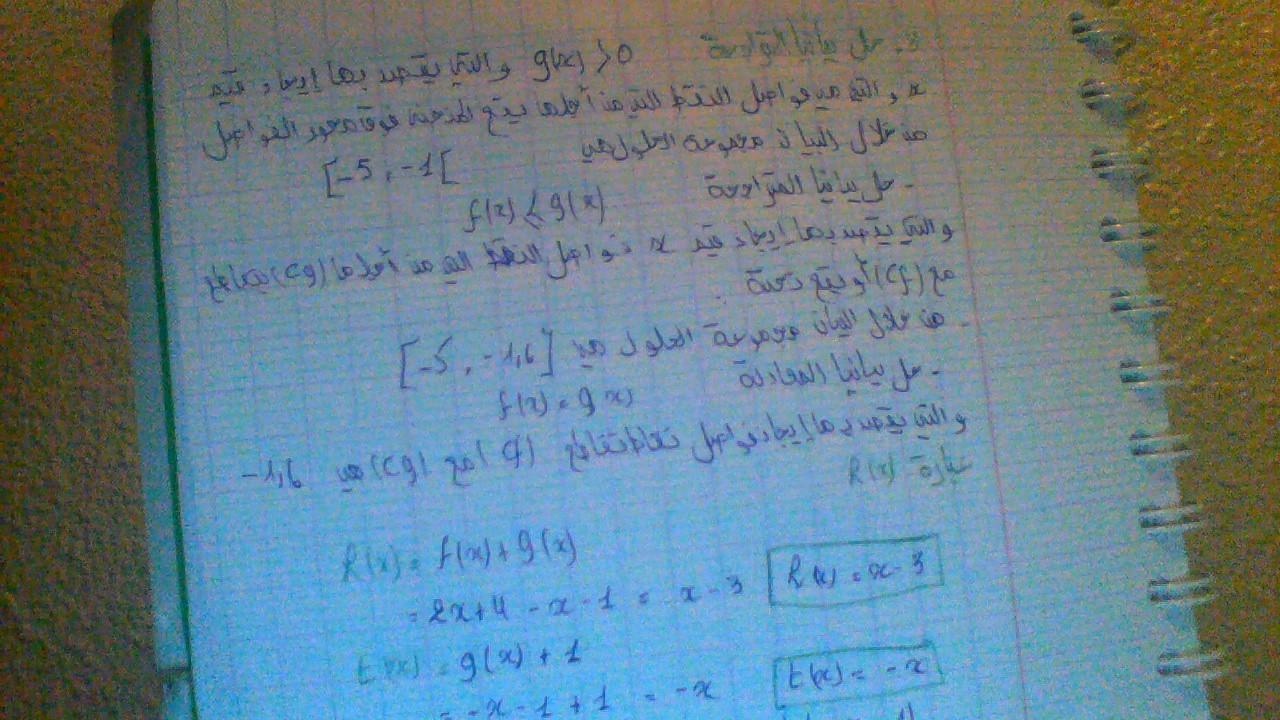 3. حل بيانيا المتراجحة
g(x) > 0 والتي يقصد بها إيجاد قيم
x والتي هي فواصل النقط التي من أجلها يقع المنحنى فوق محور الفواصل
من خلال البيان مجموعة الحلول هي
[-5, -1[
- حل بيانيا المتراجحة
f(x) ⩽ g(x)
والتي يقصد بها إيجاد قيم x فواصل النقط التي من أجلها (Cg) يتقاطع
مع (Cf) أو يقع تحته
- من خلال البيان مجموعة الحلول هي [-5, -1,6]
- حل بيانيا المعادلة
f(x) = g x)
والتي يقصد بها إيجاد فواصل نقاط تقاطع (Cf) مع (Cg) هي -1,6
عبارة R(x)
R(x) = f(x) + g(x)
= 2x+4 - x - 1 = x - 3 R(x) = x - 3
t(x) = g(x) + 1
= -x - 1 + 1 = -x t(x) = -x